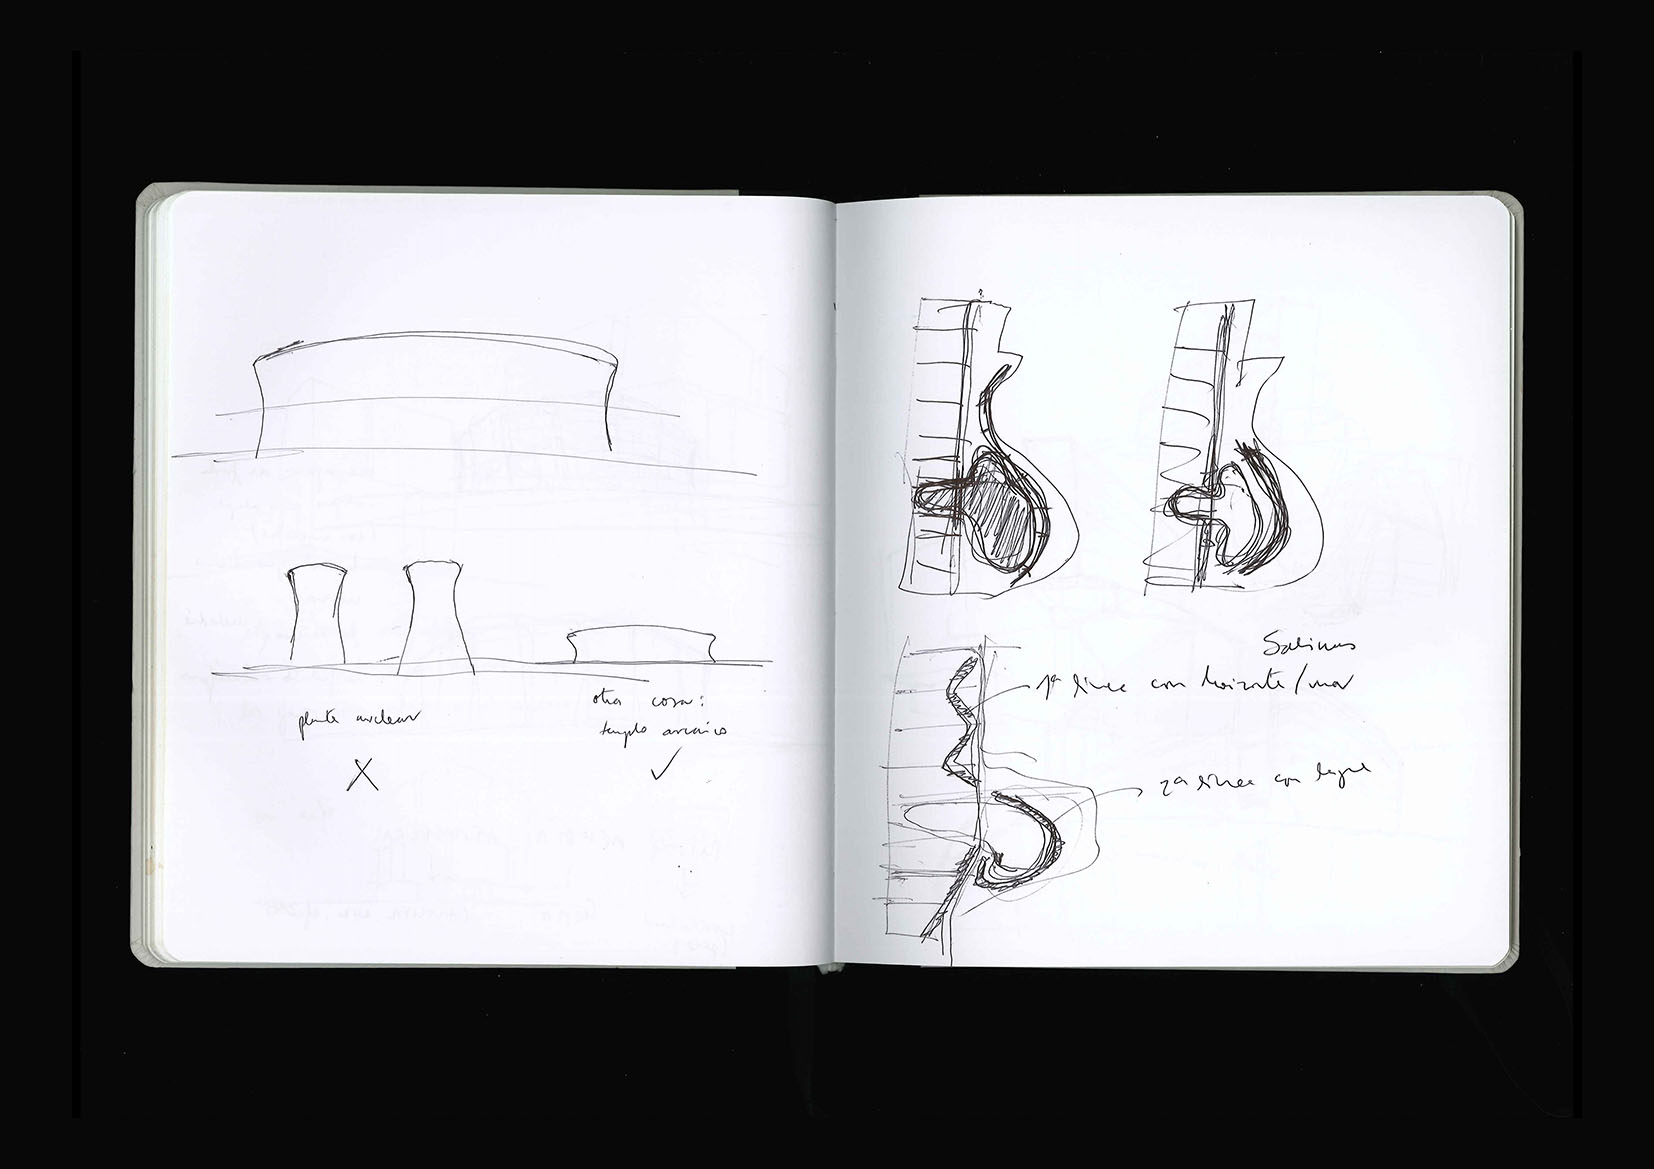 planta nuclear
X
otra cosa:
templo arcaico
✓
Salinas
1ª línea con horizonte/mar
2ª línea con